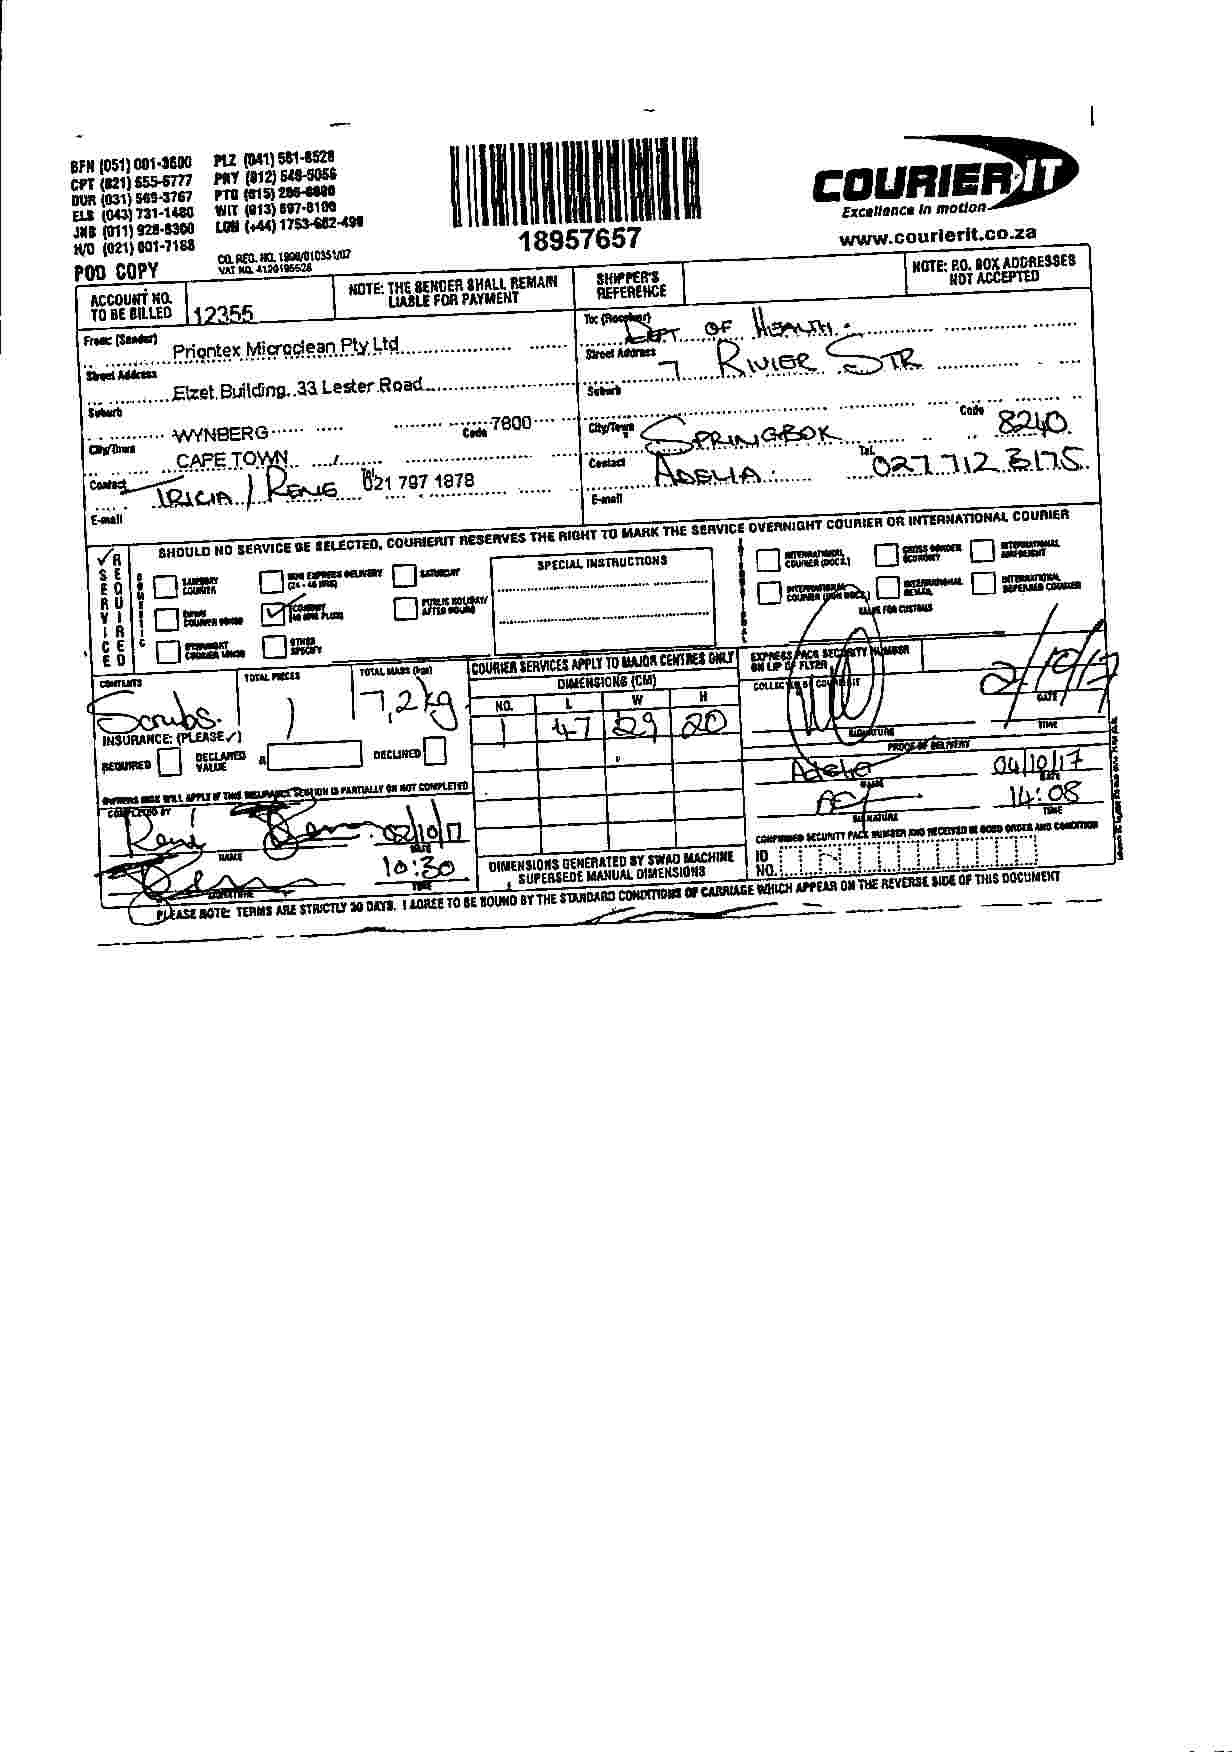 BFN (051) 001-3600
CPT (021) 555-6777
DUR (031) 569-3767
ELS (043) 731-1480
JNB (011) 928-8300
H/O (021) 001-7188
PLZ (041) 581-8528
PTG (015) 296-8880
WIT (013) 697-8100
LON (+44) 1753-682-498
POD COPY
CO. REG. NO. 1998/010351/07
VAT NO. 4120195528
18957657
COURIER IT
Excellence in motion
www.courierit.co.za
ACCOUNT NO. TO BE BILLED 12355
NOTE: THE SENDER SHALL REMAIN LIABLE FOR PAYMENT
SHIPPER'S REFERENCE
NOTE: P.O. BOX ADDRESSES NOT ACCEPTED
From: (Sender) Priontex Microclean Pty Ltd
Street Address Elzet Building, 33 Lester Road
Suburb WYNBERG Code 7800
City/Town CAPE TOWN
Contact TRICIA / RENE Tel. 021 797 1878
E-mail
To: (Receiver) DEPT. OF HEALTH
Street Address 7 RIVIER STR
Suburb
City/Town SPRINGBOK Code 8240
Contact ADELIA Tel. 027 712 3175
E-mail
SHOULD NO SERVICE BE SELECTED, COURIERIT RESERVES THE RIGHT TO MARK THE SERVICE OVERNIGHT COURIER OR INTERNATIONAL COURIER
SERVICE REQUIRED
DOMESTIC
SAMEDAY COURIER
NON EXPRESS DELIVERY (24 - 48 HRS)
SATURDAY
PUBLIC HOLIDAY/ AFTER HOURS
OTHER SPECIFY
SPECIAL INSTRUCTIONS
INTERNATIONAL COURIER (DOCS.)
CROSS BORDER ECONOMY
INTERNATIONAL AIRFREIGHT
INTERNATIONAL COURIER (NON DOCS.)
VALUE FOR CUSTOMS
CONTENTS Scrubs.
TOTAL PIECES 1
TOTAL MASS (kgs) 7,2kg
COURIER SERVICES APPLY TO MAJOR CENTRES ONLY
DIMENSIONS (CM)
NO. L W H
1 47 29 20
EXPRESS PACK SECURITY NUMBER ON LIP OF FLYER
COLLECTED BY COURIERIT
2/10/17
DATE
SIGNATURE TIME
INSURANCE: (PLEASE ✓)
REQUIRED DECLARED VALUE R DECLINED
OWNERS RISK WILL APPLY IF THIS INSURANCE SECTION IS PARTIALLY OR NOT COMPLETED
COMPLETED BY
René 02/10/17
NAME DATE
10:30
SIGNATURE TIME
PROOF OF DELIVERY
Adelia 04/10/17
NAME DATE
14:08
SIGNATURE TIME
CONFIRMED SECURITY PACK NUMBER AND RECEIVED IN GOOD ORDER AND CONDITION
ID NO.
DIMENSIONS GENERATED BY SWAD MACHINE SUPERSEDE MANUAL DIMENSIONS
PLEASE NOTE: TERMS ARE STRICTLY 30 DAYS. I AGREE TO BE BOUND BY THE STANDARD CONDITIONS OF CARRIAGE WHICH APPEAR ON THE REVERSE SIDE OF THIS DOCUMENT